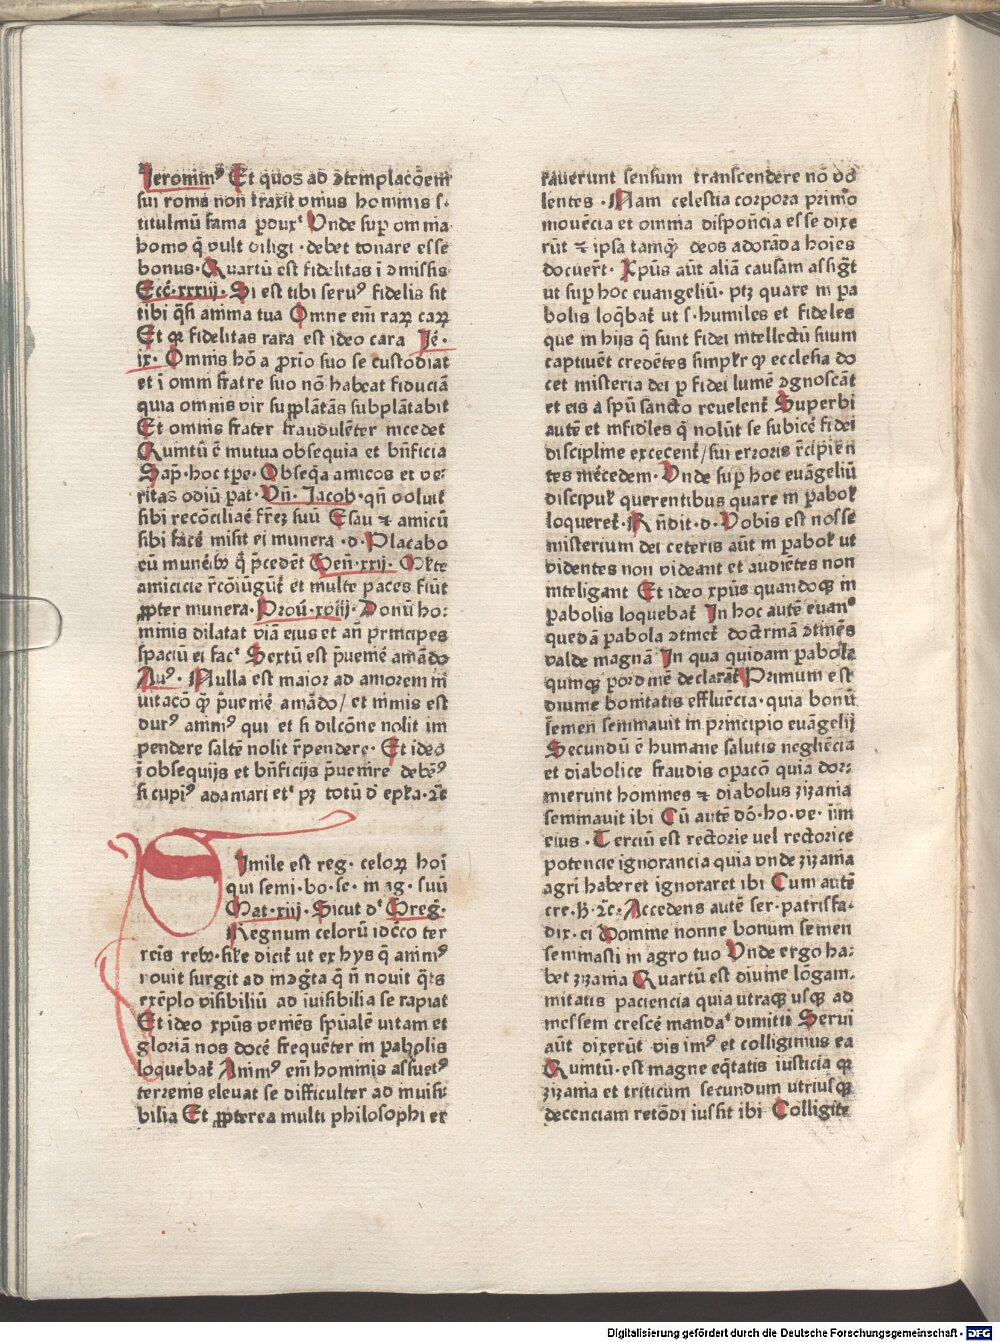 Ieronim⁹ Et quos ad ꝯtemplacōem
sui roma non traxit vnius hominis s·
titulmū fama ꝑduxᵗ Vnde suꝑ omnia
homo q̄ vult diligi · debet conare esse
bonus· Quartū est fidelitas ī ꝯmissis
Eccͨ·xxxiij· Si est tibi seru⁹ fidelis sit
tibi q̄si anima tua Omne em̄ raꝝ caꝝ
Et qꝫ fidelitas rara est ideo cara Je͛·
ix· Omnis hō a ꝓxio suo se custodiat
et ī omni fratre suo nō habeat fiduciā
quia omnis vir supplātās subplātabit
Et omnis frater fraudulēter incedet
Quintū ē mutua obsequia et bn̄ficia
Sap̄· hoc tꝑe· Obseq̄a amicos et ve-
ritas odiū pat· Vn̄· Jacob· qn̄ voluit
sibi recōciliaē fr̄eꝫ suū Esau ⁊ amicū
sibi face͛ misit ei munera ·d· Placabo
eū munēibꝫ q̄ p̄cedēt Gen̄·xxij· Ml̄te
amicicie r̄cōiūgūt᷑ et multe paces fiūt
ꝓpter munera· Prou͛·xviij· Donū ho:
minis dilatat viā eius et an̄ principes
spaciū ei facᵗ Sextū est p̄uemē amādo
Au⁹· Nulla est maior ad amorem in
uitacō qꝫ p̄uemē amādo/ et nimis est
dur⁹ anim⁹ qui et si dilcōne nolit im
pendere saltē nolit r̄pendere· Et ideo
ī obsequijs et bn̄ficijs p̄uemre debem⁹
si cupi⁹ adamari etᵗ pꝫ totū d̄ epl̄a·⁊c̄
Simile est reg· celoꝝ hoi͞
qui semi·bo·se· in ag· suū
Mat·xiij· Sicut d͛ᵗ Greg͛·
Regnum celorū idcͨco ter
reis͞ rebꝫ· sil̄e dicit᷑ ut ex hys q̄ anim⁹
nouit surgit ad maḡta q̄ n̄ nouit q̄t᷑s
exēplo visibiliū ad īuisibilia se rapiat
Et ideo xp̄us vemēs sp̄ualē uitam et
gloriā nos doce͛ frequēter in ꝑabolis
loquebat᷑ Anim⁹ em̄ hominis assuet⁹
terrems eleuat se difficulter ad inuisi:
bilia Et ꝓpterea multi philosophi ex
rauerunt sensum transcendere nō vo
lentes · Nam celestia corpora primo
mouēcia et omnia disponēcia esse dixe
rūt ⁊ ipsa tamqꝫ deos adorāda hoīes
docuer̄t· Xp̄us aūt aliā causam assigͭt
ut suꝑ hoc euangeliū· ptꝫ quare in pa
bolis loq̄bat᷑ ut s·humiles et fideles
que in hijs q̄ sunt fidei intellectū suum
captiuēt credētes simpl͛r qꝫ ecclesia do
cet misteria dei ꝑ fidei lumē ꝯgnoscāt
et eis a sp̄u sancto reuelent᷑ Superbi
autē et infidͤles q̄ nolūt se subice͛ fidei
discipline excecent᷑/ sui erroris r̄cipien
tes mercedem· Vnde suꝑ hoc euāgeliū
discipul᷑ querentibus quare in ꝑabol᷑
loqueret᷑· Rn̄dit·d·Vobis est nosse
misterium dei ceteris aūt in ꝑabol᷑ ut
videntes non videant et audiētes non
inteligant Et ideo xp̄us quandoqꝫ in
ꝑabolis loquebat᷑ In hoc autē euan⁰
quedā ꝑabola ꝯtinet᷑ doctrinā ꝯtinēs
valde magnā In qua quidam ꝑabola
quinqꝫ ꝑ ordinē declarāt᷑ Primum est
diuine bonitatis effluēcia· quia bonū
semen seminauit in principio euāgelij
Secundū ē humane salutis negliēcia
et diabolice fraudis oꝑacō quia dor:
mierunt homines ⁊ diabolus zizania
seminauit ibi Cū autē dō·ho·ve·iīm
eius· Terciū est rectorie uel rectorice
potencie ignorancia quia vnde zizania
agri haberet ignoraret ibi Cum autē
cre·ꝶ·⁊c̄· Accedens autē ser·patrisfa·
dix· ei Domine nonne bonum semen
seminasti in agro tuo Vnde ergo ha:
bet zizania Quartū est diuine lōgam·
mitatis paciencia quia utraqꝫ usqꝫ ad
messem cresce͛ mandaᵗ dimitti Serui
aūt dixerūt vis im⁹ et colligimus ea
Quintū· est magne eq̄tatis iusticia qꝫ
zizania et triticum secundum utriusqꝫ
decenciam retōdi iussit ibi Colligite
Digitalisierung gefördert durch die Deutsche Forschungsgemeinschaft - DFG